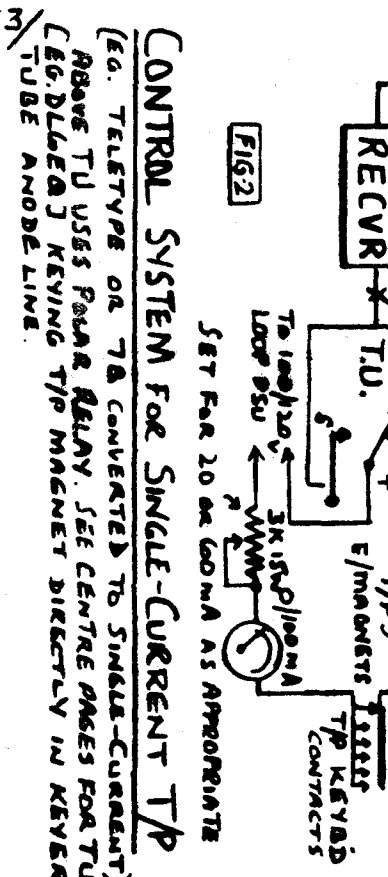 RECVR
T.U.
E/MAGNETS
T/P KEYB'D
CONTACTS
FIG 2
TO 100/120V
LOOP PSU
3K 15W
0/100MA
SET FOR 20 OR 60MA AS APPROPRIATE
CONTROL SYSTEM FOR SINGLE-CURRENT T/P
(EG. TELETYPE OR 7B CONVERTED TO SINGLE-CURRENT)
ABOVE TU USES POLAR RELAY. SEE CENTRE PAGES FOR TU
[EG. DL6EQ] KEYING T/P MAGNET DIRECTLY IN KEYER
TUBE ANODE LINE.
3/